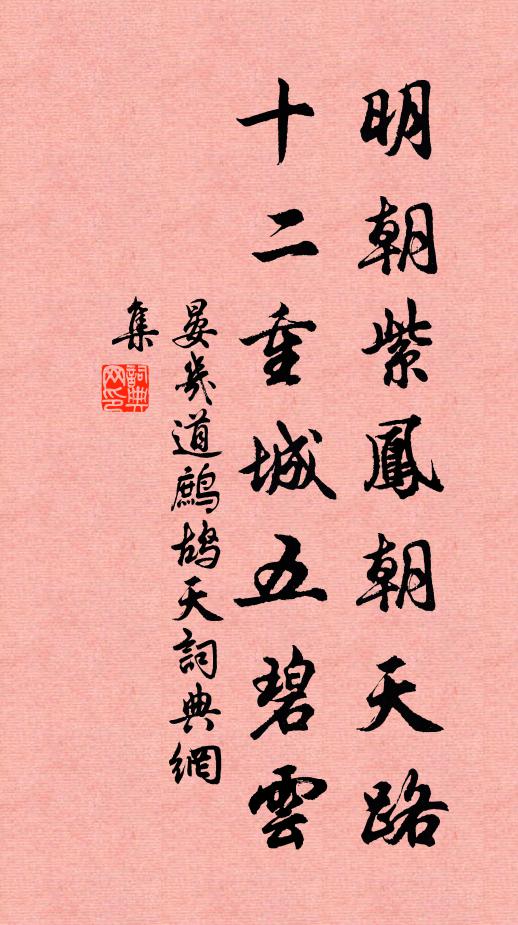 明朝紫鳳朝天路
十二重城五碧雲
晏幾道鷓鴣天詞典網
集
詞典網印